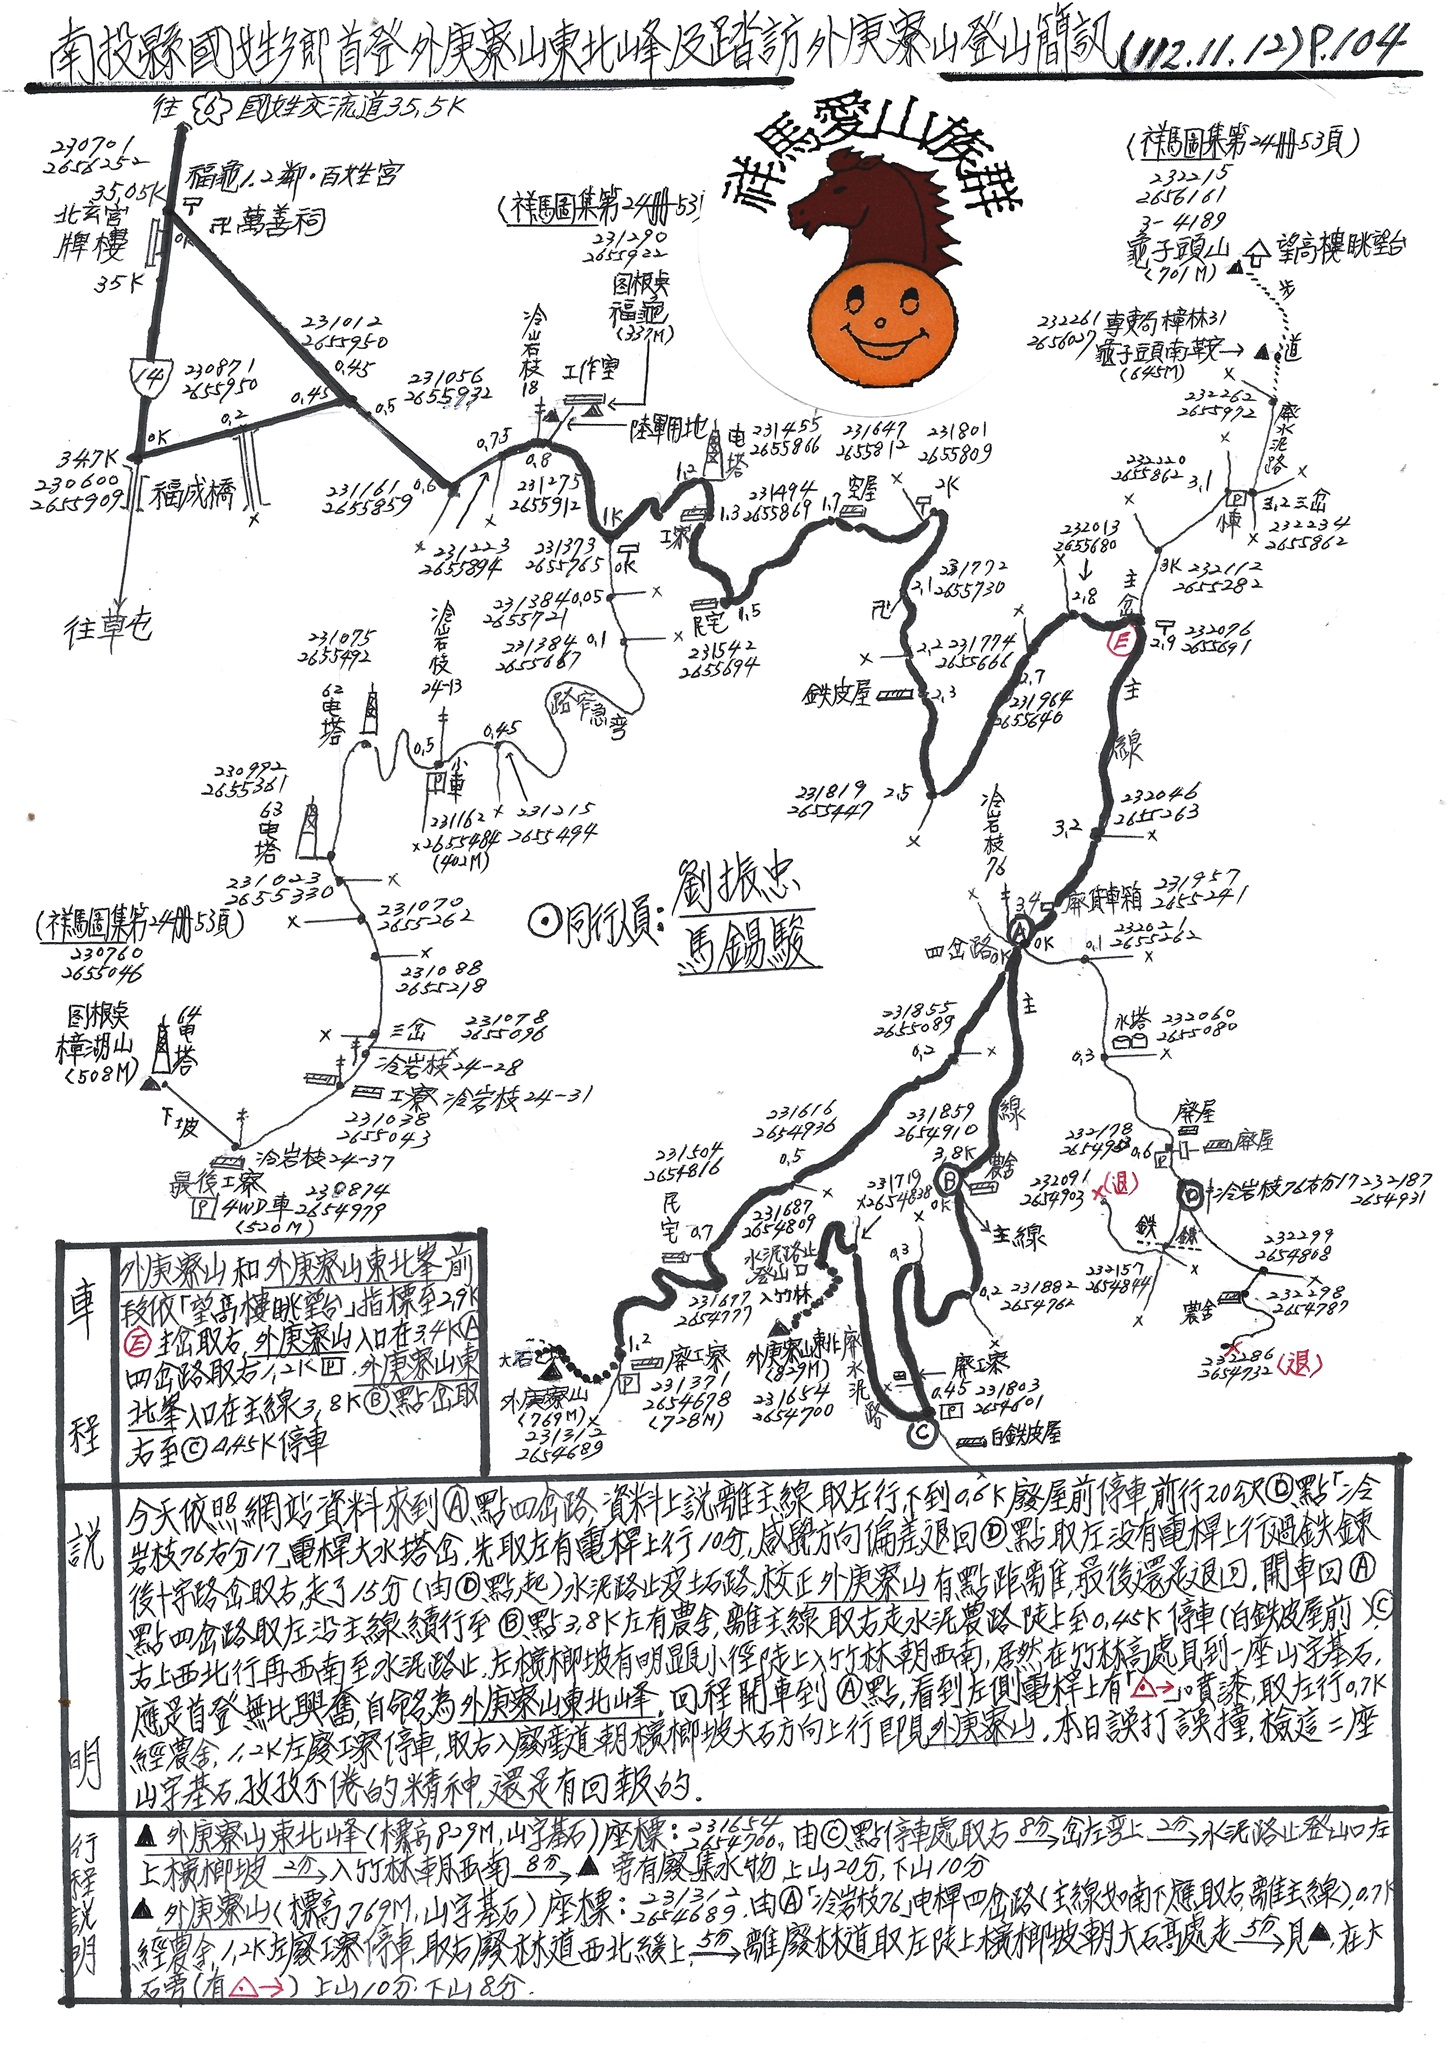 南投縣國姓鄉首登外庚寮山東北峰及踏訪外庚寮山登山簡訊(112.11.12)P.104
往 6 國姓交流道35.5K
祥馬愛山族群
(祥馬圖集第24冊53頁)
232215
2656161
3-4189
龜子頭山
(701M)
望高樓眺望台
步
道
230701
2656252
35.05K
福龜1.2鄰·百姓宮
北玄宮
牌樓
0K
卍萬善祠
35K
(祥馬圖集第24冊53
231290
2655922
图根奌
福龜
(337M)
232261
2656027
專吏局樟林31
龜子頭南鞍→
(645M)
231012
2655950
0.45
冷岩枝18
工作室
陸軍用地
14
230871
2655950
0.45
0.2
0K
0.5
231056
2655932
0.75
0.8
232262
2655972
廢水泥路
347K
230600
2655909
福成橋
231161
2655859
0.6
231275
2655912
1K
1.2
电塔
231455
2655866
231647
2655812
231801
2655809
232220
2655862
3.1
小車
P
3.2三岔
232234
2655862
231223
2655894
231373
2655765
0K
工寮
1.3
231494
2655869
1.7
空屋
2K
232013
2655680
2.8
3K
232112
2655282
主岔
往草屯
231384
2655721
0.05
231384
2655667
0.1
民宅
1.5
231542
2655694
231772
2655730
2.1
卍
2.2
231774
2655666
E
2.9
232076
2655691
231075
2655492
62
电塔
冷岩枝
24-13
路窄急弯
鉄皮屋
2.3
2.7
231964
2655640
主線
0.5
小車
P
0.45
230992
2655361
63
电塔
231162
2655484
(402M)
231215
2655494
231819
2655447
2.5
冷岩枝76
3.2
232046
2655263
231023
2655330
231070
2655262
⊙同行人員:
劉振忠
馬錫駿
3.4
廢貨車箱
231957
2655241
四岔路
A
0K
0K
0.1
232021
2655262
(祥馬圖集第24冊53頁)
230760
2655046
图根奌
樟湖山
(508M)
64
电塔
下坡
231088
2655218
三岔
231078
2655096
冷岩枝24-28
工寮
冷岩枝24-31
231038
2655043
冷岩枝24-37
最後工寮
P
4WD車
(520M)
230874
2654979
231855
2655089
0.2
主線
水塔
232060
2655080
0.3
231616
2654936
0.5
231859
2654910
3.8K
B
農舍
0K
主線
232178
0.6
P
廢屋
廢屋
231504
2654816
民宅
0.7
231719
2654838
232091
2654903
(退)
D
冷岩枝76右分17
232187
2654931
231687
2654809
水泥路止
登山口
入竹林
0.3
0.2
231882
2654762
鉄鍊
232157
2654844
232299
2654808
農舍
232298
2654787
232286
2654732
(退)
231677
2654777
大石
外庚寮山
(769M)
231312
2654689
1.2
P
廢工寮
231371
2654678
(728M)
外庚寮山東北
(829M)
231654
2654700
廢水泥路
廢工寮
0.45
231803
2654601
P
C
白鉄皮屋
車程
外庚寮山和外庚寮山東北峯前
段依「望高樓眺望台」指標至2.9K
Ⓔ主岔取右,外庚寮山入口在3.4KⒶ
四岔路取右1.2K P.外庚寮山東
北峯入口在主線3.8KⒷ點岔取
右至Ⓒ0.45K停車
說明
今天依照網站資料來到Ⓐ點四岔路,資料上說離主線取左行下到0.6K廢屋前停車,前行20公尺Ⓓ點「冷
岩枝76右分17」電桿大水塔岔.先取左有電桿上行10分,感覺方向偏差退回Ⓓ點取左没有電桿上行過鉄鍊
後十字路岔取右,走了15分(由Ⓓ點起)水泥路止変土石路,校正外庚寮山有點距離,最後還是退回,開車回Ⓐ
點四岔路取左沿主線續行至Ⓑ點3.8K左有農舍,離主線取右走水泥農路陡上至0.45K停車(白鉄皮屋前)Ⓒ
右上西北行再西南至水泥路止.左檳榔坡有明顯小徑陡上入竹林朝西南,居然在竹林高處見到一座山字基石,
應是首登無比興奮,自命名為外庚寮山東北峰.回程開車到Ⓐ點,看到左側電桿上有「△→」噴漆,取左行0.7K
經農舍,1.2K左廢工寮停車,取右入廢產道朝檳榔坡大石方向上行即見外庚寮山.本日誤打誤撞,檢這二座
山字基石,孜孜不倦的精神,還是有回報的.
行程說明
▲外庚寮山東北峰(標高829M,山字基石)座標:231654 2654700,由Ⓒ點停車處取右8分→岔左弯上2分→水泥路止登山口左
上檳榔坡2分→入竹林朝西南8分→▲旁有廢集水物 上山20分,下山10分
▲外庚寮山(標高769M,山字基石)座標:231312 2654689.由Ⓐ「冷岩枝76」電桿四岔路(主線如南下應取右,離主線).0.7K
經農舍,1.2K左廢工寮停車,取右廢林道西北緩上,5分→離廢林道取左陡上檳榔坡朝大石高處走5分→見▲,在大
石旁(有△→)上山10分.下山8分.